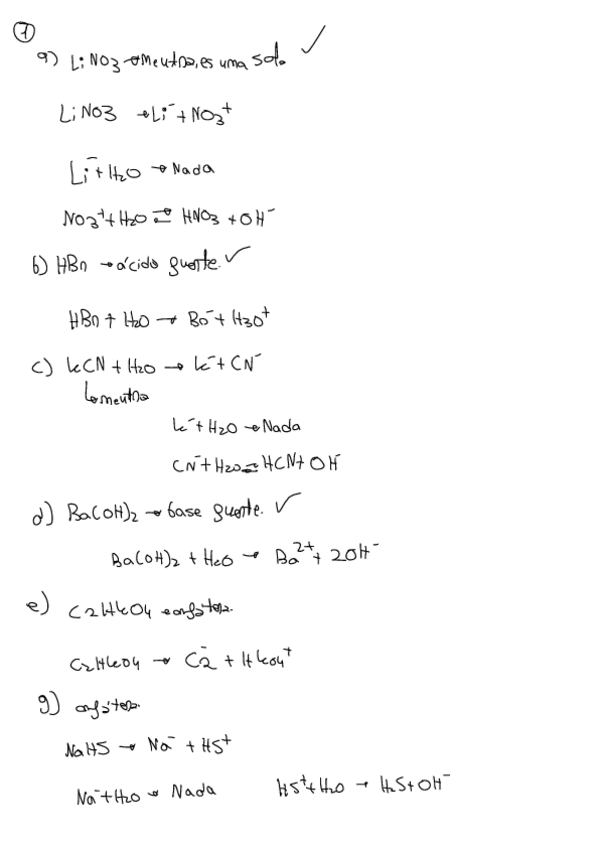 ①
a) LiNO3 → Neutro, es una sal. ✓
LiNO3 → Li⁻ + NO3⁺
Li⁻ + H2O → Nada
NO3⁺ + H2O ⇌ HNO3 + OH⁻
b) HBr → ácido fuerte. ✓
HBr + H2O → Br⁻ + H3O⁺
c) KCN + H2O → K⁻ + CN⁻
↳ neutro
K⁻ + H2O → Nada
CN⁻ + H2O ⇌ HCN + OH⁻
d) Ba(OH)2 → base fuerte. ✓
Ba(OH)2 + H2O → Ba²⁺ + 2OH⁻
e) C2HKO4 → anfótera.
C2HKO4 → C2⁻ + HKO4⁺
g) anfótera.
NaHS → Na⁻ + HS⁺
Na⁻ + H2O → Nada HS⁺ + H2O → H2S + OH⁻